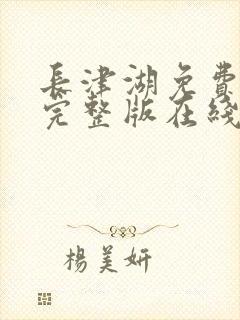 長津湖免費
完整版在綫
楊美妍